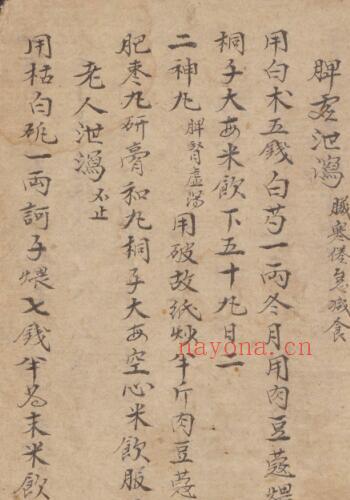 脾虚泄瀉 臓寒倦怠減食
用白术五錢白芍一兩冬月用肉豆蔻煨
桐子大每米飲下五十丸日二
二神丸 脾腎虛瀉 用破故紙炒半斤肉豆蔻
肥棗丸研膏和丸桐子大每空心米飲服
老人泄瀉 不止
用枯白矾一兩訶子煨七錢半為末米飲
nayona.cn